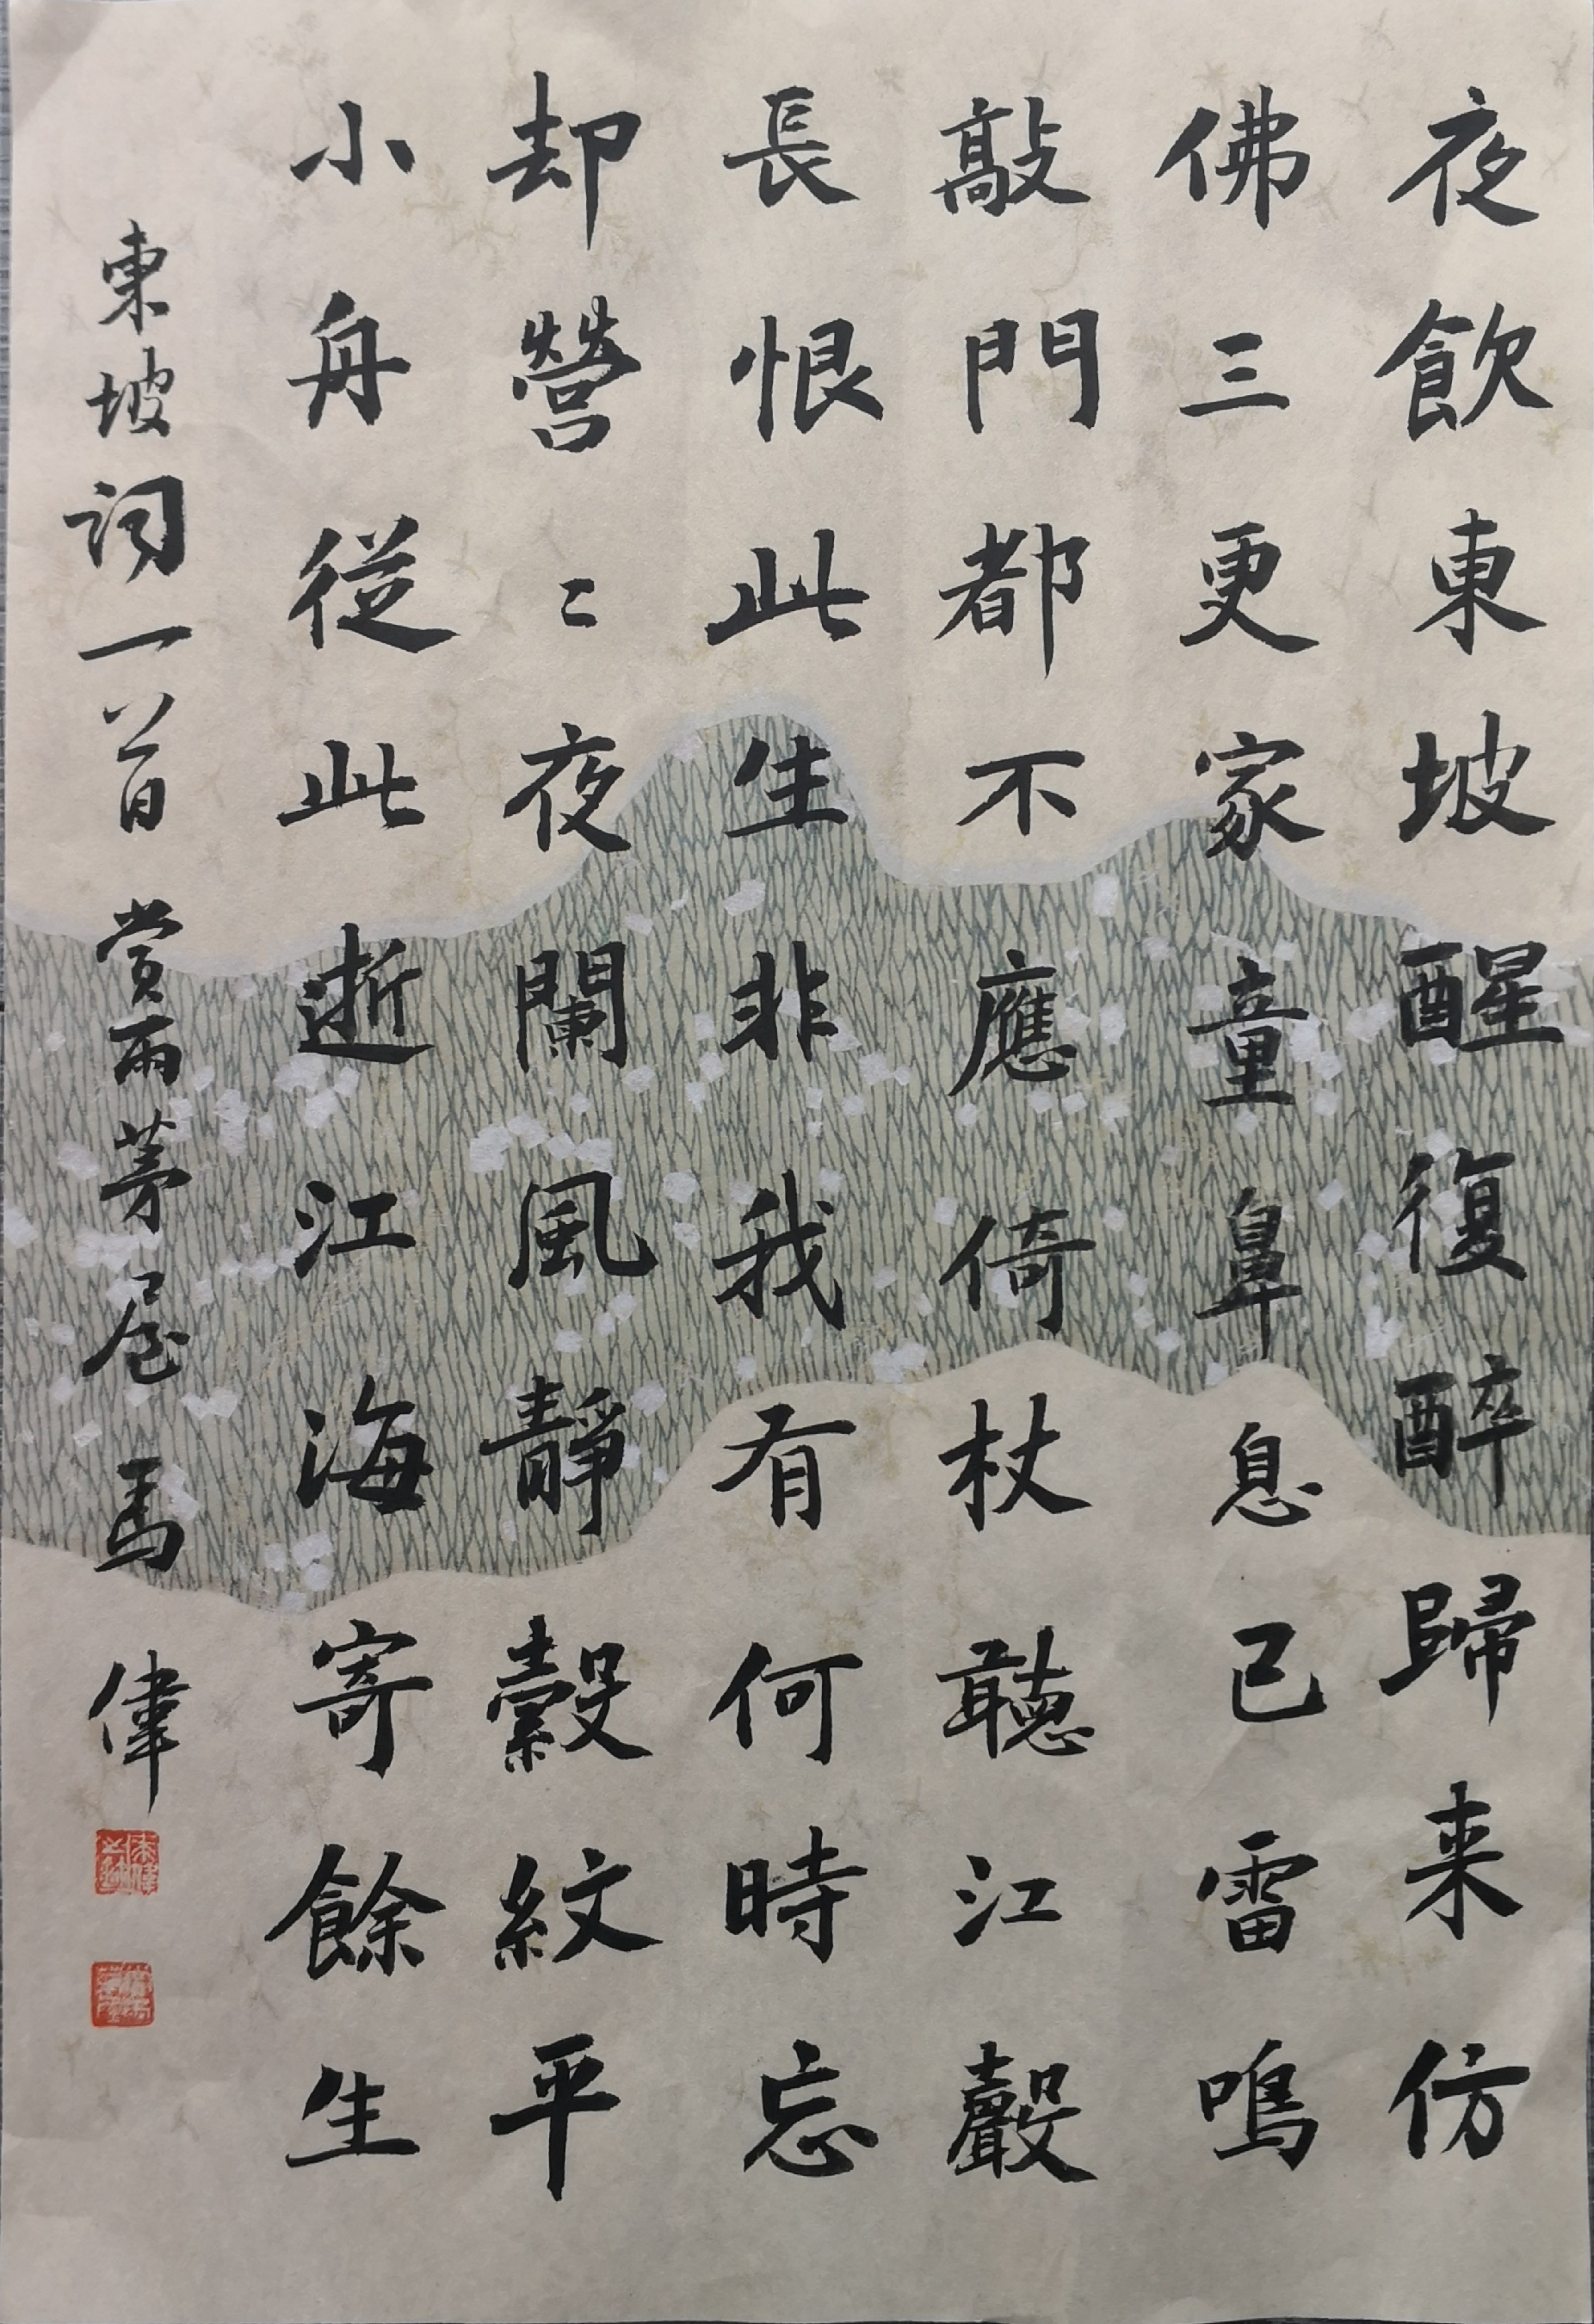 夜飲東坡醒復醉歸来仿
佛三更家童鼻息已雷鳴
敲門都不應倚杖聽江聲
長恨此生非我有何時忘
却營〻夜闌風靜縠紋平
小舟從此逝江海寄餘生
東坡詞一首 賞雨茅屋 馬偉